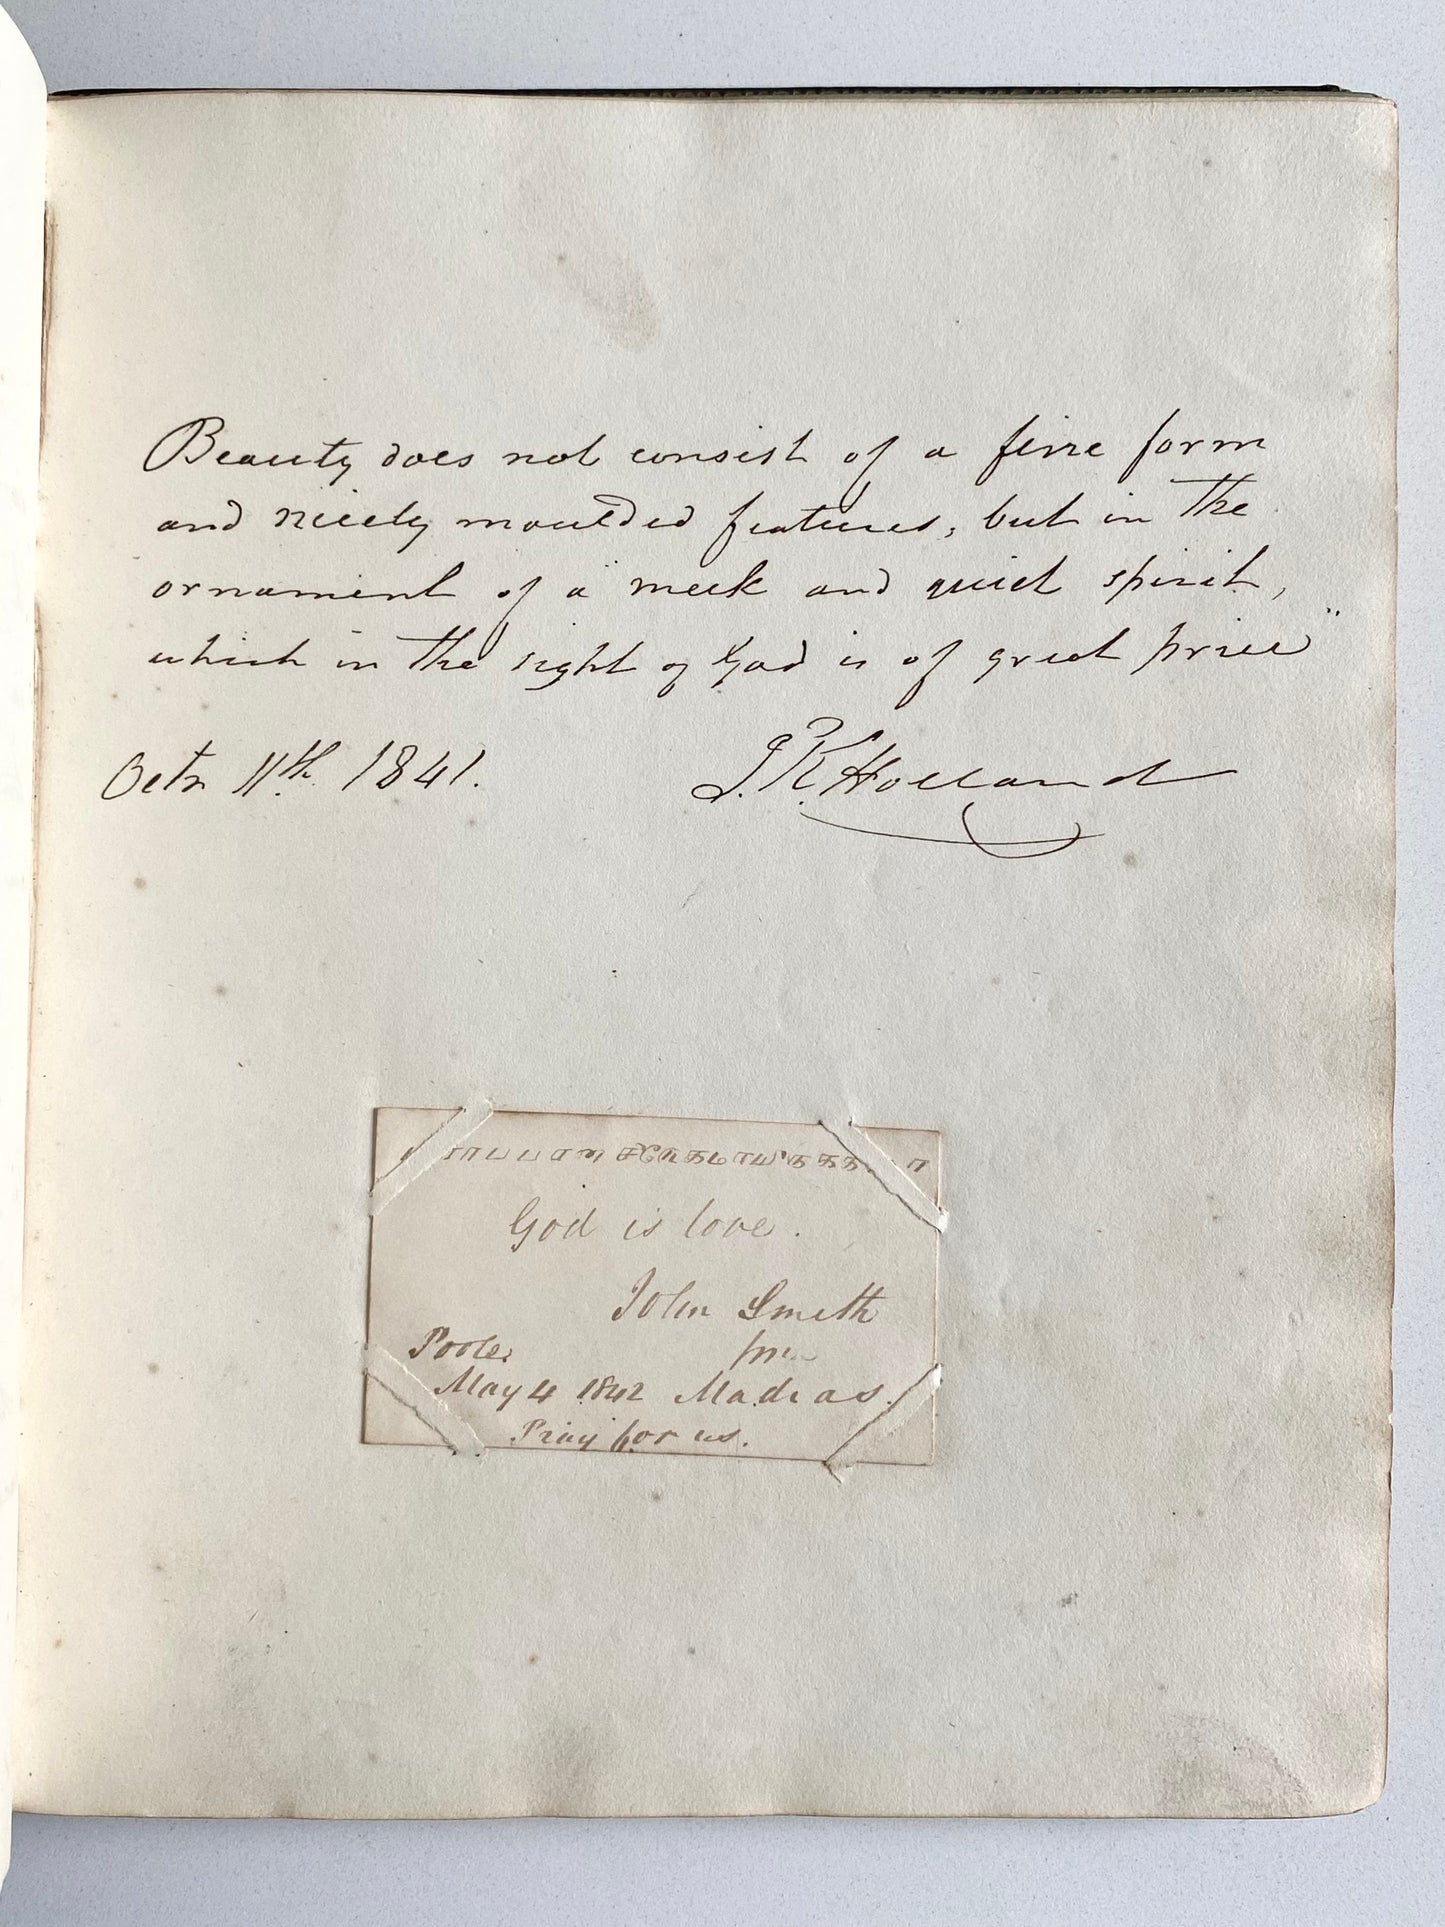 Beauty does not consist of a fine form
and nicely moulded features, but in the
ornament of a "meek and quiet spirit,
which in the sight of God is of great price"
Octr 11th. 1841.
J. K. Holland
God is love.
John Smith
Poole.
May 4 1842 Madras.
Pray for us.